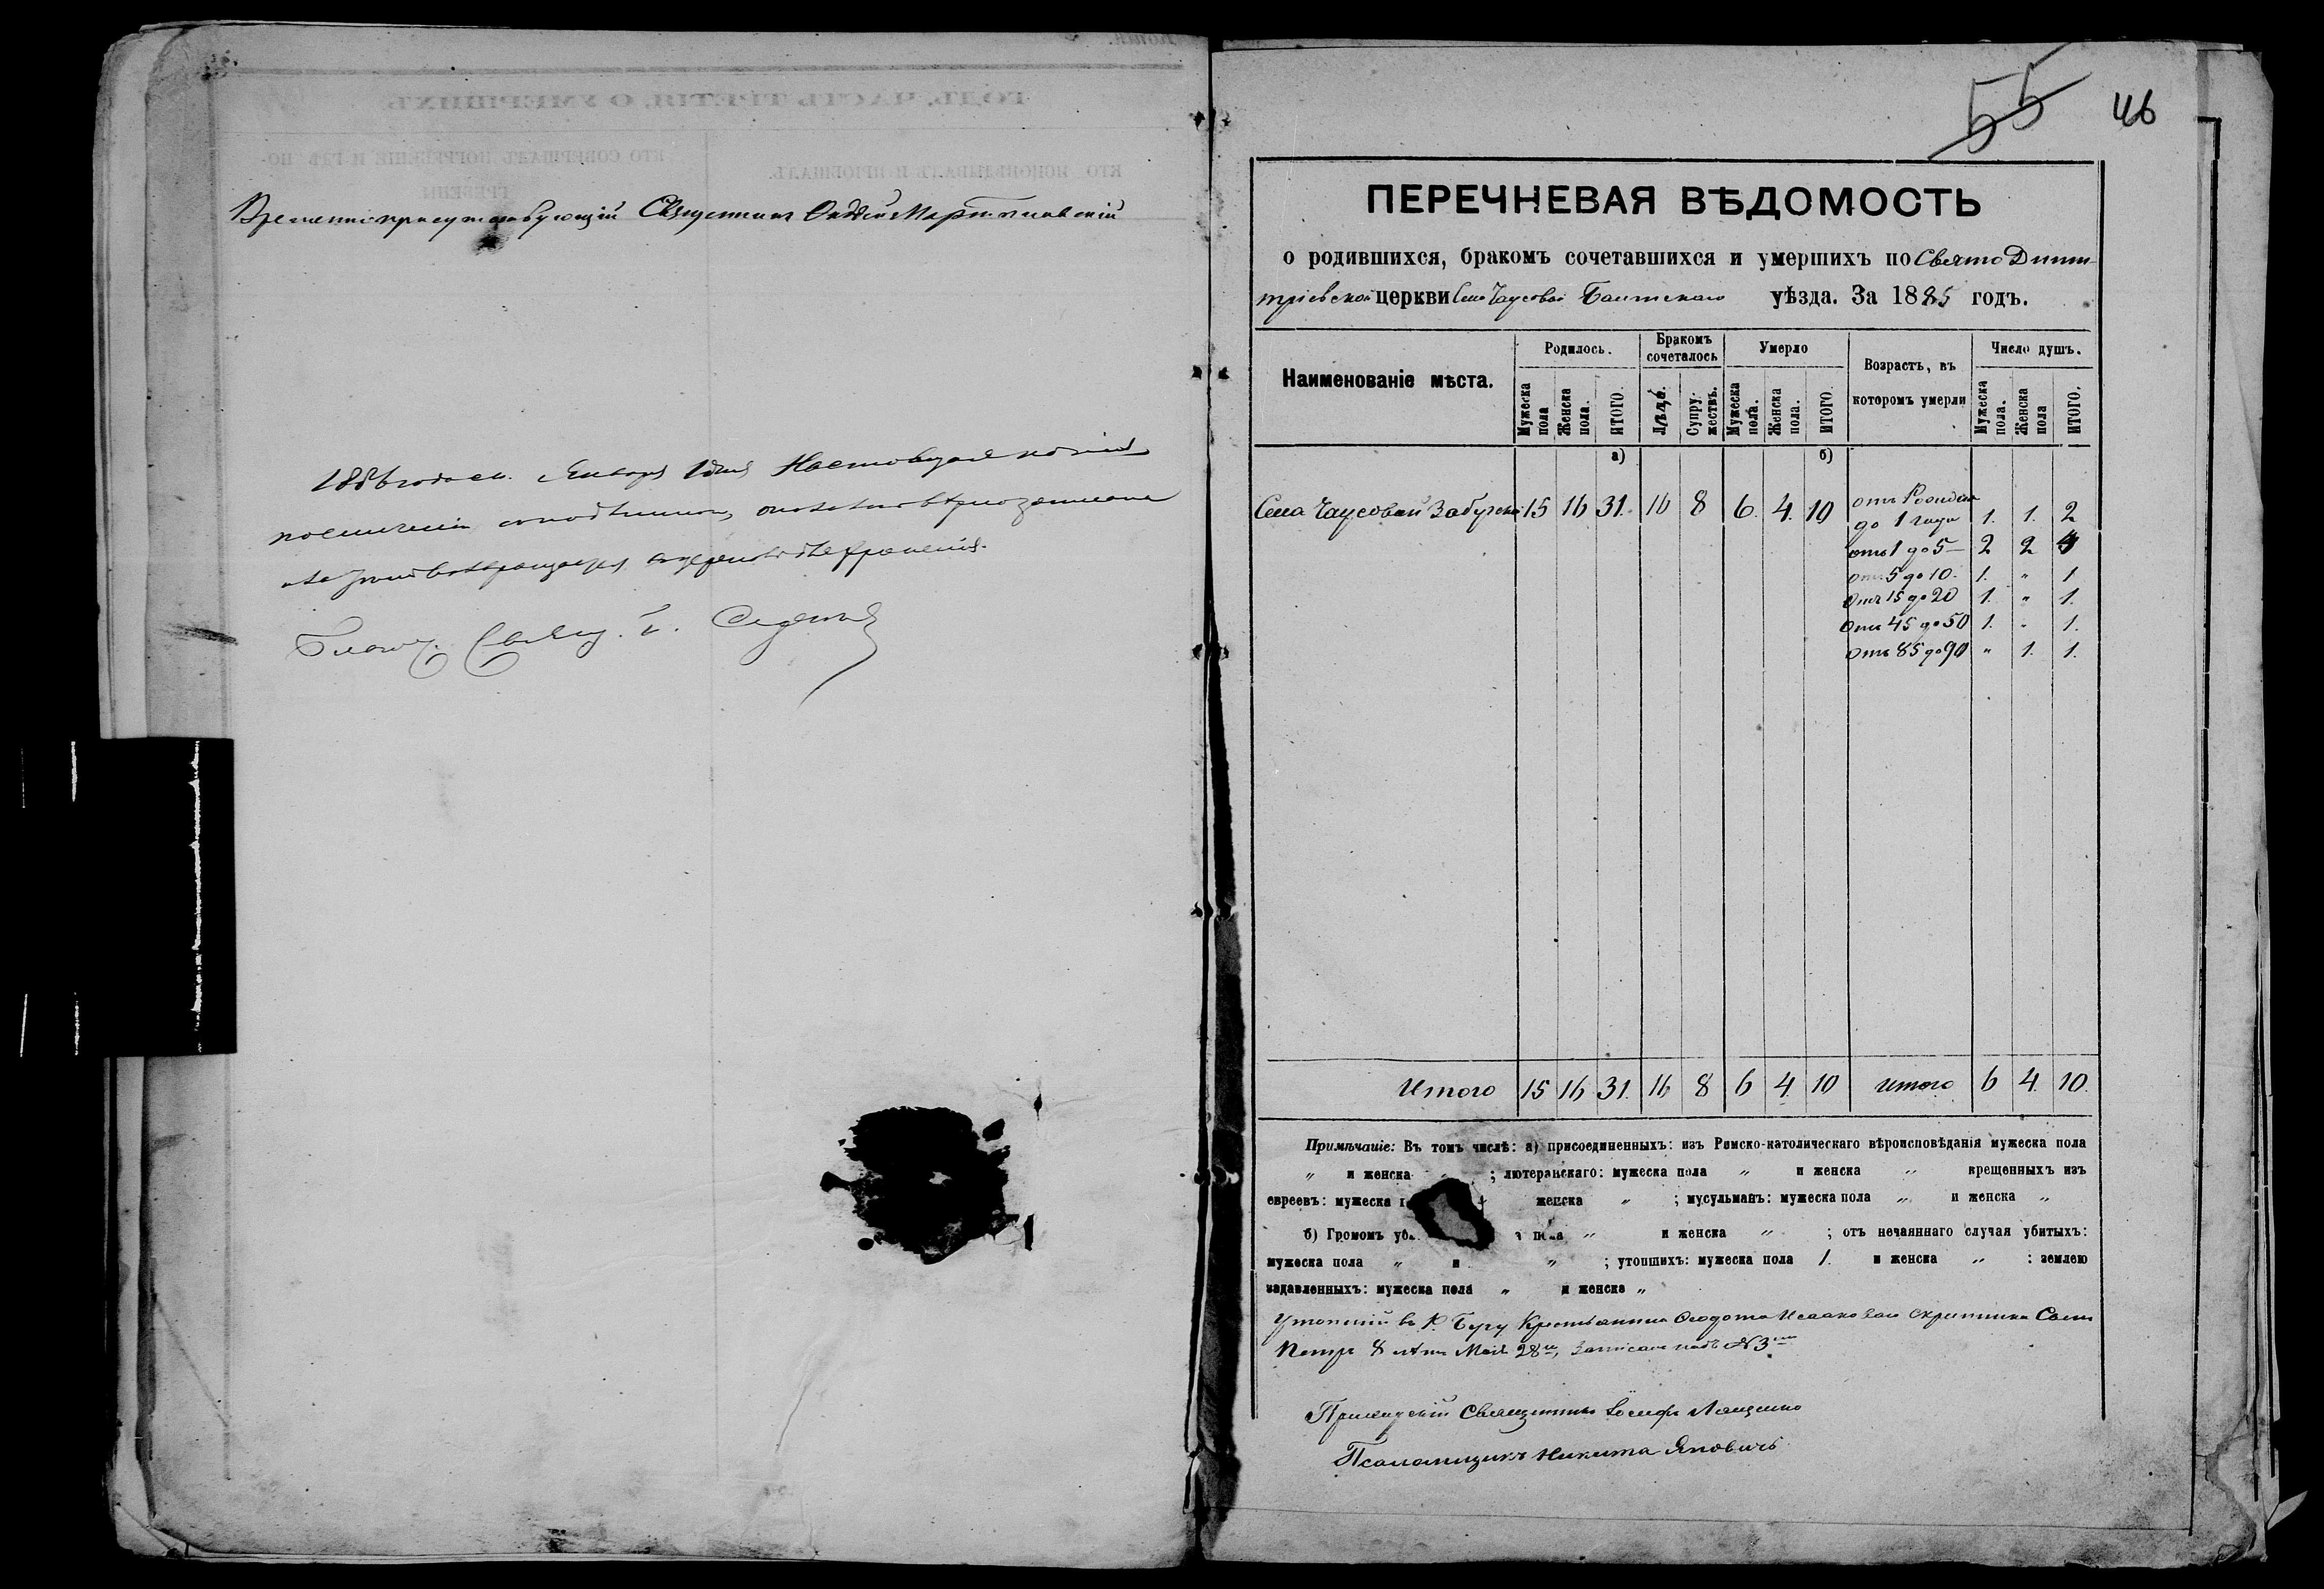 Временно присутствующій Священникъ Авдій Мартыновскій
1886 года Января 1 дня Настоящая копія
по сличеніи съ подлинною, оказалась вѣрно записана
Благоч. Свящ. І.
55 46
ПЕРЕЧНЕВАЯ ВѢДОМОСТЬ
о родившихся, бракомъ сочетавшихся и умершихъ по Свято Дими-
тріевской церкви Села Чаусовой Балтскаго уѣзда. За 1885 годъ.
Наименованіе мѣста. Родилось. Бракомъ сочеталось Умерло Возрастъ, въ которомъ умерли Число душъ.
Мужеска пола Женска пола. ИТОГО. Лицъ. Супружествъ. Мужеска пола. Женска пола. ИТОГО. Мужеска пола. Женска пола ИТОГО.
а) б)
Села Чаусовой Забугской 15 16 31. 16 8 6. 4. 10 отъ Рожден.
до 1 года 1. 1. 2
отъ 1 до 5 — 2 2 4
отъ 5 до 10. 1. „ 1
Отъ 15 до 20 1. „ 1.
Отъ 45 до 50 1. „ 1.
Отъ 85 до 90 „ 1. 1.
Итого 15 16 31. 16 8 6 4. 10 Итого 6 4. 10.
Примѣчаніе: Въ томъ числѣ: а) присоединенныхъ: изъ Римско-католическаго вѣроисповѣданія мужеска пола
„ и женска „ ; лютеранскаго: мужеска пола „ и женска „ крещенныхъ изъ
евреевъ: мужеска женска „ ; мусульманъ: мужеска пола „ и женска „
б) Громомъ уби пола „ и женска „ ; отъ нечаяннаго случая убитыхъ:
мужеска пола „ и „ ; утопшихъ: мужеска пола 1. и женска „ : землею
задавленныхъ: мужеска пола „ и женска „
Утопшій въ Р. Бугу Крестьянина Ѳеодота Исаакова Скрипника Сынъ
Петръ 8 лѣтъ Мая 28го, Записанъ подъ №3мъ
Приходскій Священникъ Іосифъ Лященко
Псаломщикъ Никита Яновичъ